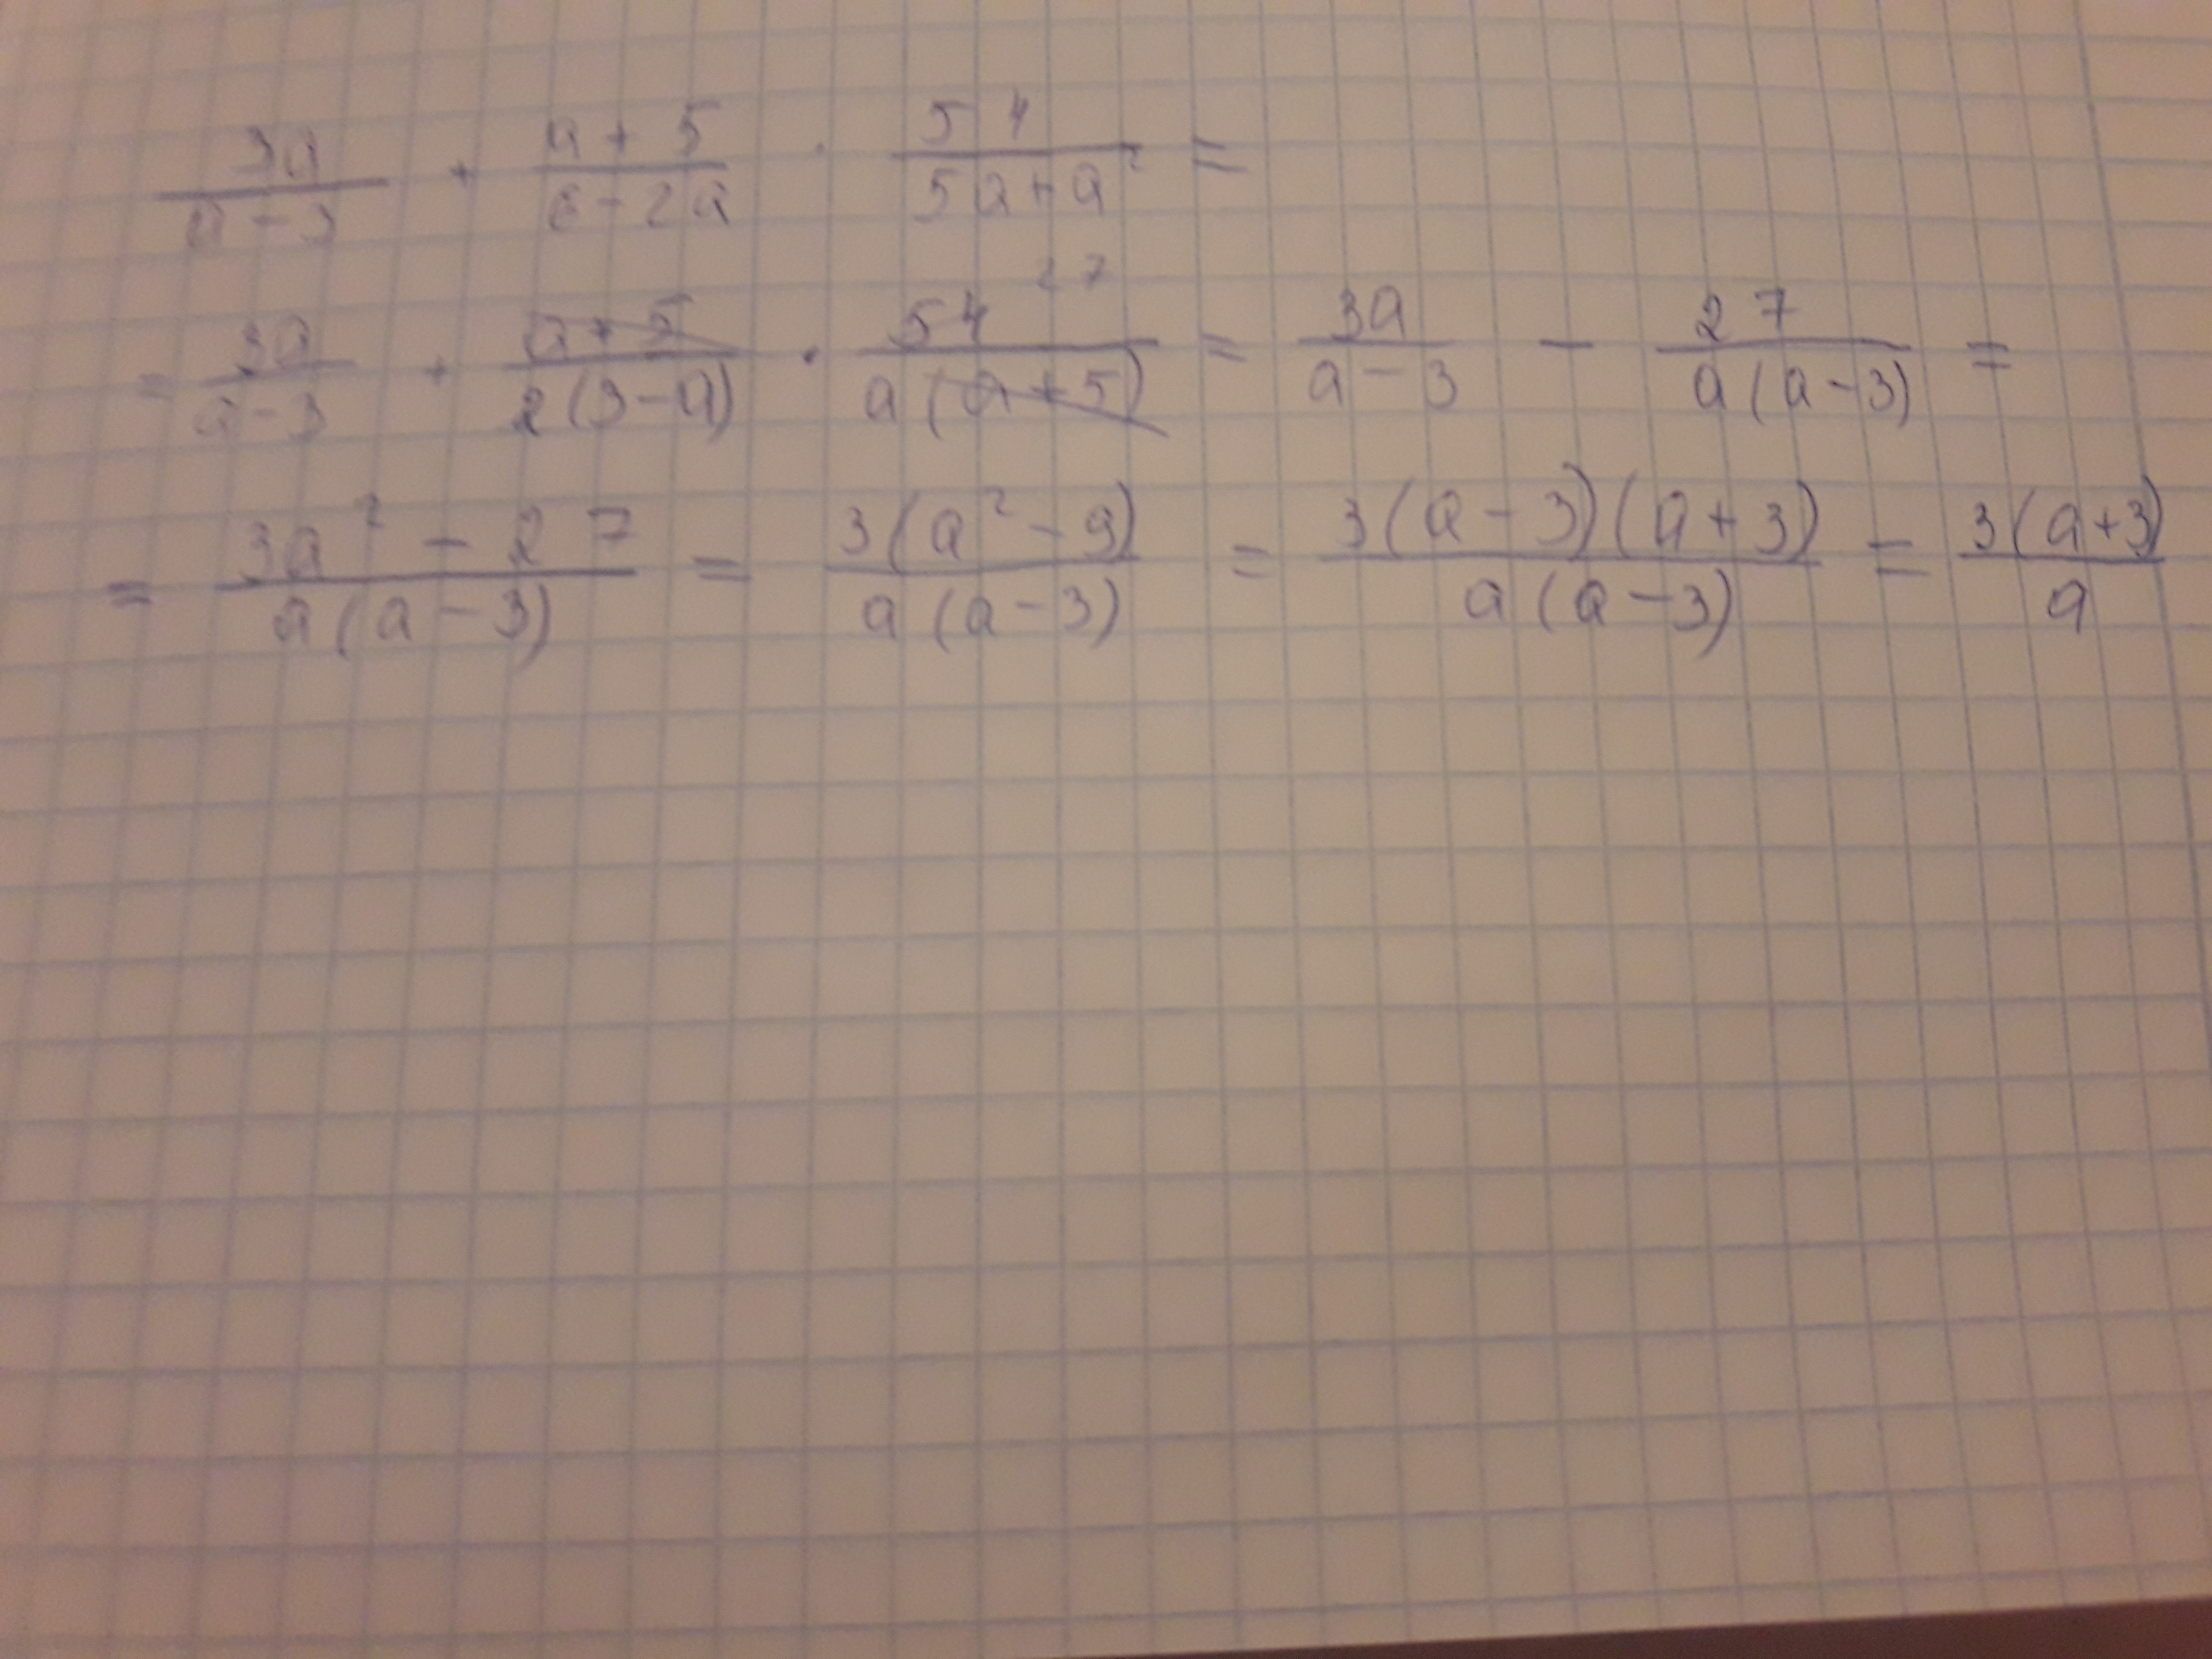 3a/(a-3) + (a+5)/(6-2a) · 54/(5a+a²) =
= 3a/(a-3) + (a+5)/(2(3-a)) · 54 27/(a(a+5)) = 3a/(a-3) - 27/(a(a-3)) =
= (3a²-27)/(a(a-3)) = 3(a²-9)/(a(a-3)) = 3(a-3)(a+3)/(a(a-3)) = 3(a+3)/a